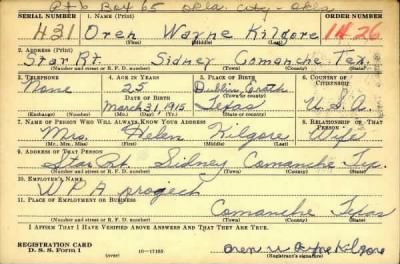 Rt 6 Box 65 Okla. City - Okla
SERIAL NUMBER 1. NAME (Print) ORDER NUMBER
431 Oren Wayne Kilgore 1426
(First) (Middle) (Last)
2. ADDRESS (Print)
Star Rt. Sidney Comanche Tex.
(Number and street or R. F. D. number) (Town) (County) (State)
3. TELEPHONE 4. AGE IN YEARS 5. PLACE OF BIRTH 6. COUNTRY OF CITIZENSHIP
None 25 Dublin Erath U.S.A.
DATE OF BIRTH (Town or county)
March 31, 1915 Texas
(Exchange) (Number) (Mo.) (Day) (Yr.) (State or country)
7. NAME OF PERSON WHO WILL ALWAYS KNOW YOUR ADDRESS 8. RELATIONSHIP OF THAT PERSON
Mrs. Helen Kilgore Wife
(Mr., Mrs., Miss) (First) (Middle) (Last)
9. ADDRESS OF THAT PERSON
Star Rt Sidney Comanche Tex.
(Number and street or R. F. D. number) (Town) (County) (State)
10. EMPLOYER'S NAME
WPA project
11. PLACE OF EMPLOYMENT OR BUSINESS
Comanche Texas
(Number and street or R. F. D. number) (Town) (County) (State)
I AFFIRM THAT I HAVE VERIFIED ABOVE ANSWERS AND THAT THEY ARE TRUE.
REGISTRATION CARD
D. S. S. Form 1 16-17105 Oren Kilgore
(Registrant's signature)